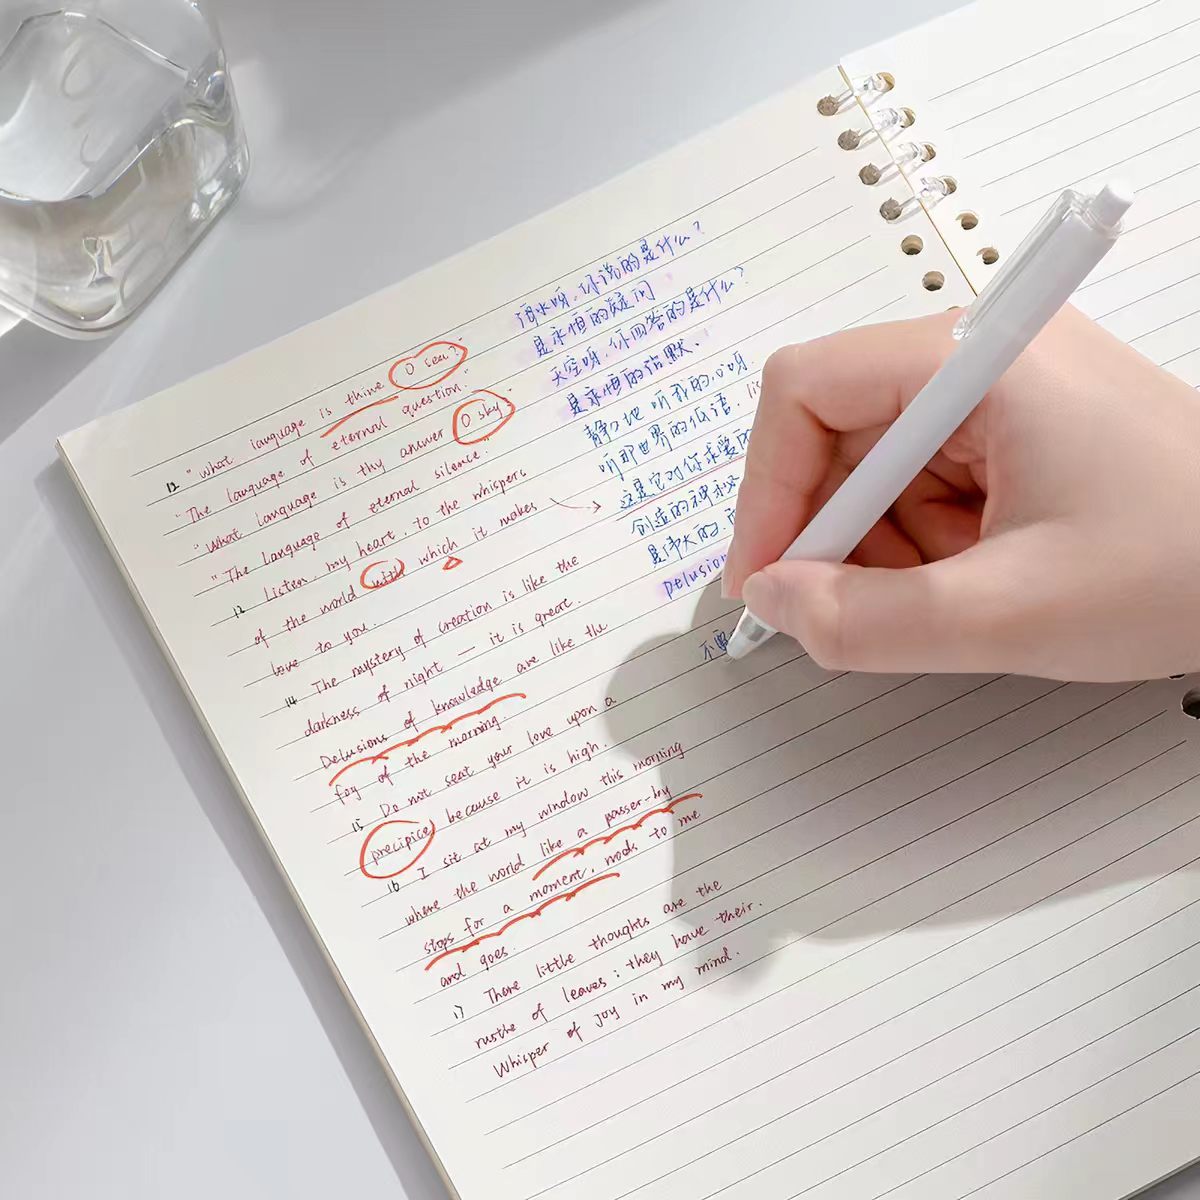 12 "What language is thine O sea?"
"The language of eternal question."
"What language is thy answer O sky?"
"The language of eternal silence."
13 Listen, my heart, to the whispers
of the world with which it makes
love to you.
14 The mystery of creation is like the
darkness of night — it is great.
Delusions of knowledge are like the
fog of the morning.
15 Do not seat your love upon a
precipice because it is high.
16 I sit at my window this morning
where the world like a passer-by
stops for a moment, nods to me
and goes.
17 There little thoughts are the
rustle of leaves; they have their
Whisper of joy in my mind.
海水呀,你说的是什么?
是永恒的疑问
天空呀,你回答的是什么?
是永恒的沉默.
静静地听,我的心呀
听那世界的低语,
这是它对你求爱的
创造的神秘
是伟大的,
Delusion
不